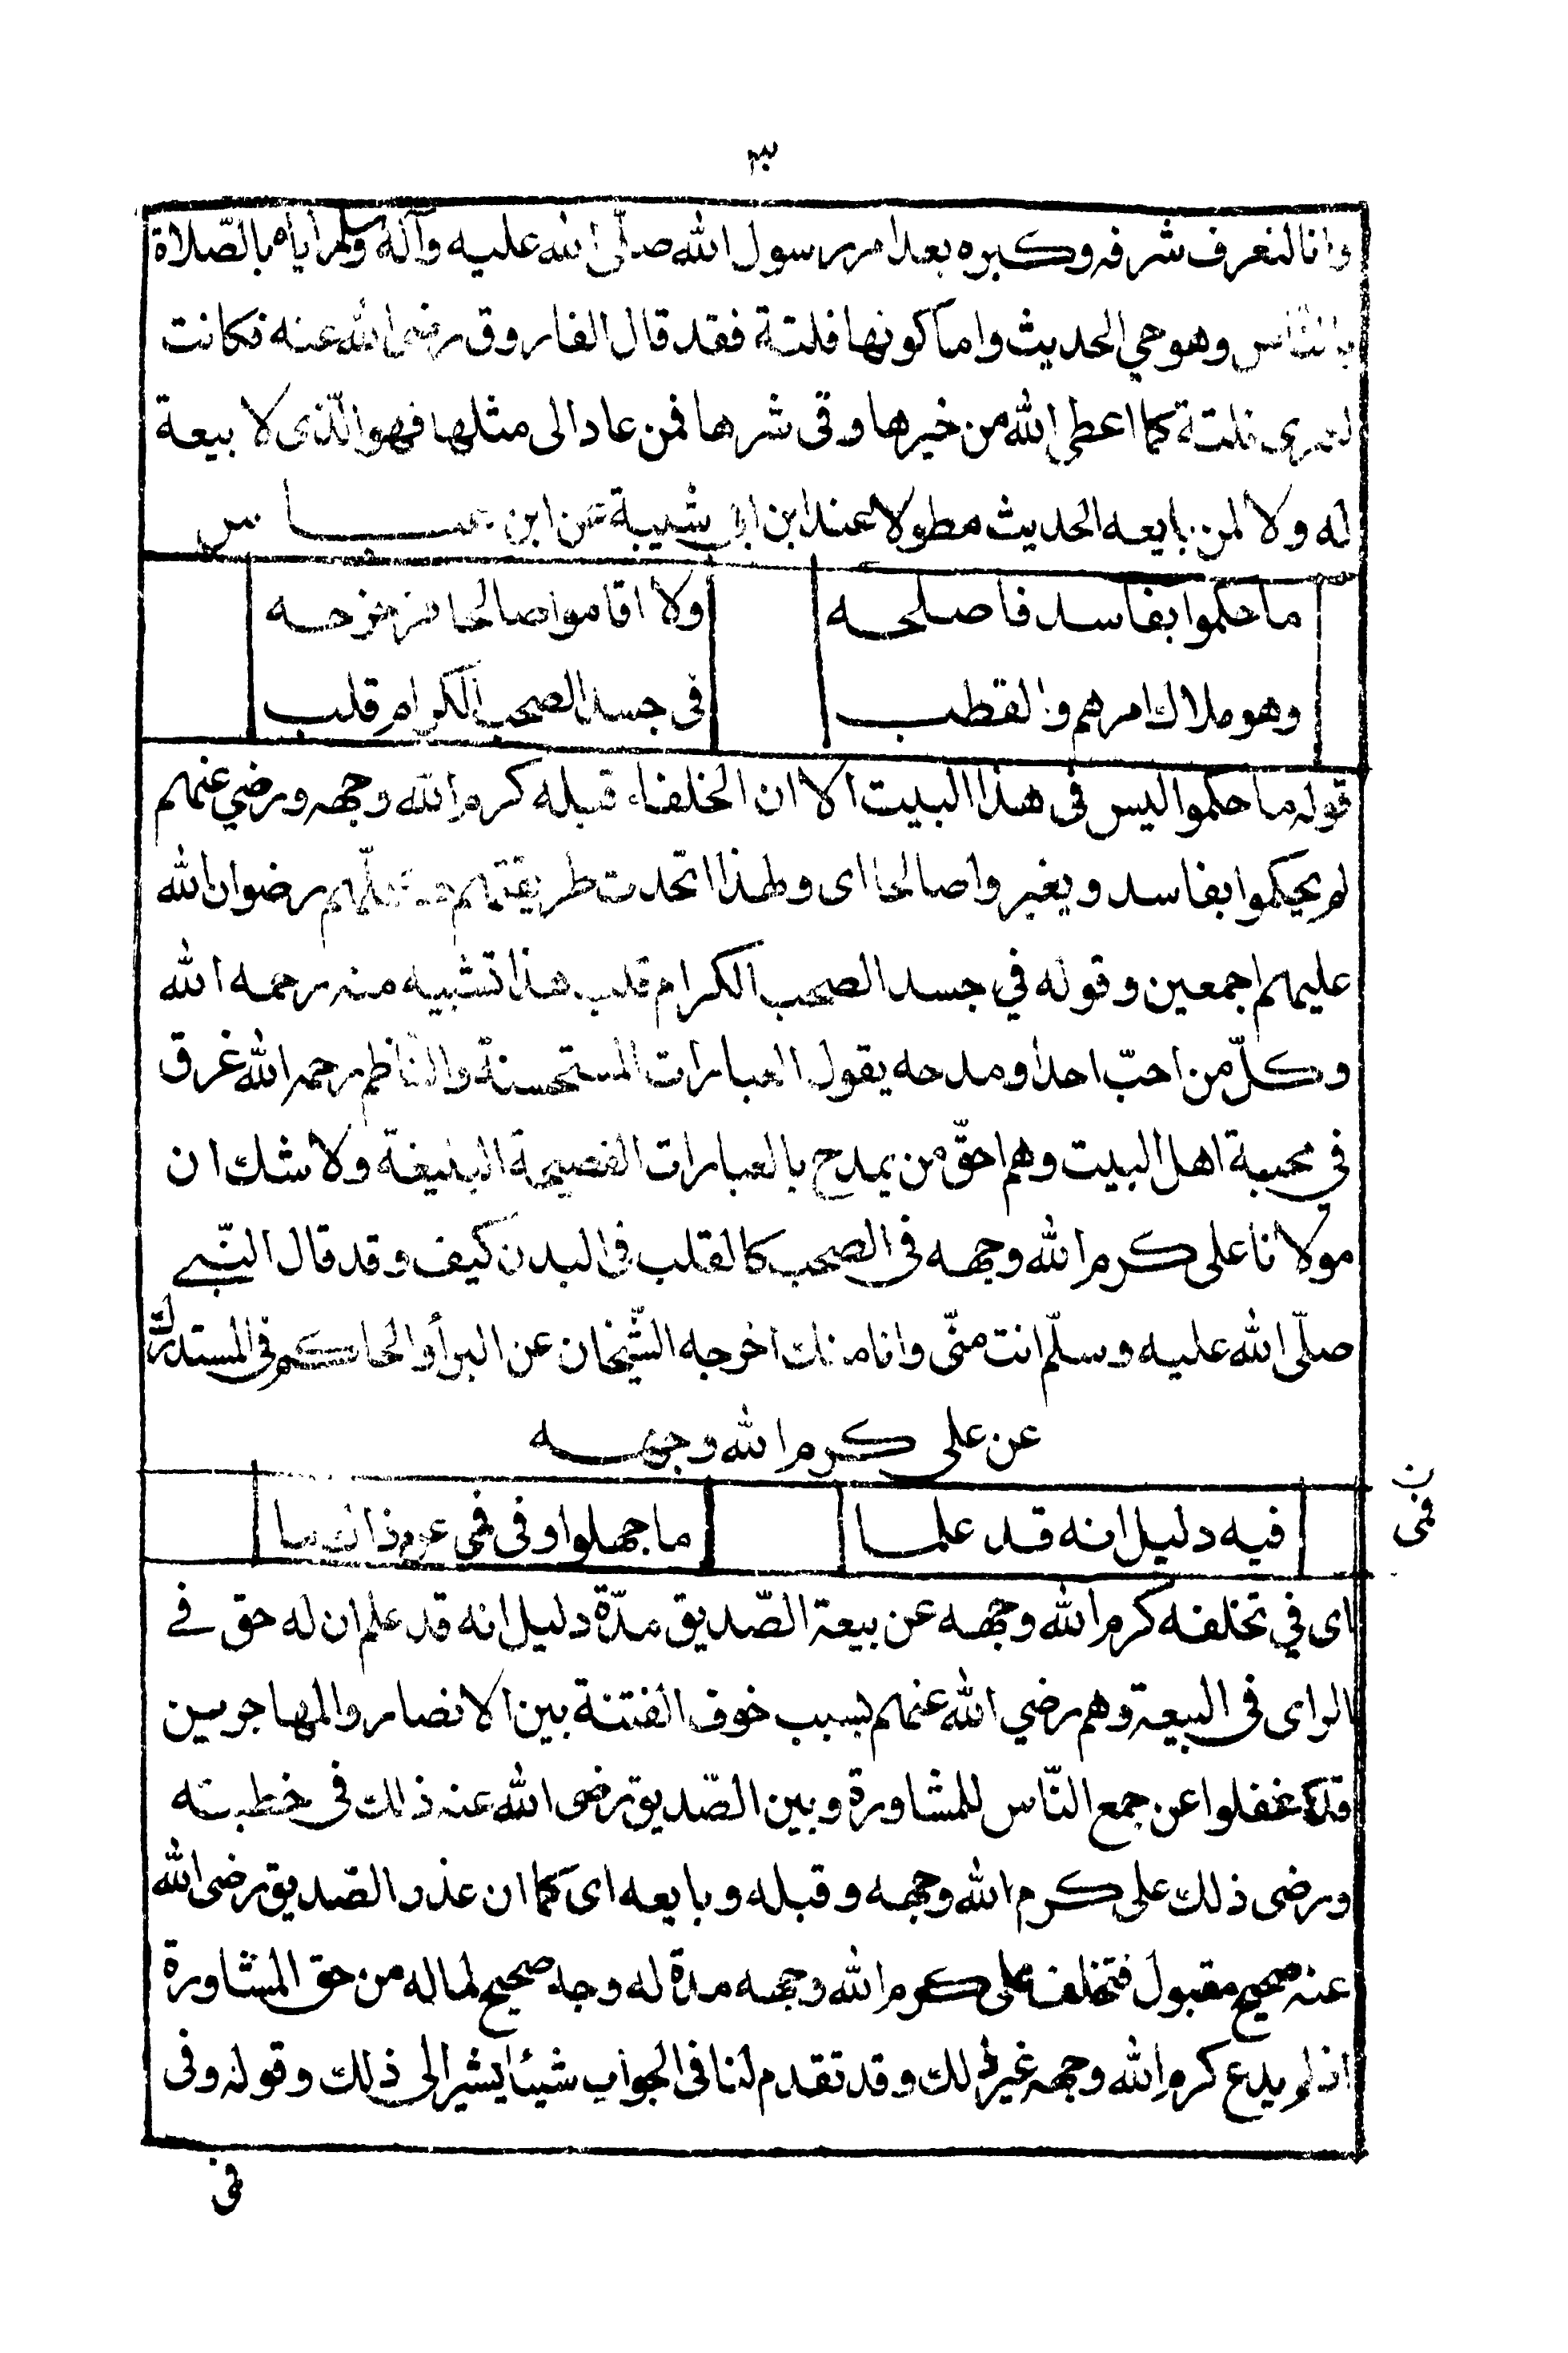 ٣
وانا لنعرف شرفه وكبره بعد امر رسول الله صلّى الله عليه وآله وسلم اياه بالصّلاة
بالنّاس وهو حي الحديث واما كونها فلتة فقد قال الفاروق رضى الله عنه فكانت
لعمرى فلتة كما اعطى الله من خيرها وقى شرها فمن عاد الى مثلها فهو الّذى لا بيعة
له ولا لمن بايعه الحديث مطولا عند ابن ابى شيبة عن ابن عباس
ما حكموا بفاسد فاصلحه ولا اقاموا صالحا فزحزحه
وهو ملاك امرهم والقطب فى جسد الصحب الكرام قلب
قوله ما حكموا ليس فى هذا البيت الا ان الخلفاء قبله كرم الله وجهه ورضي عنهم
لم يحكموا بفاسد ويغيروا صالحا اى ولهذا اتحدت طريقتهم رضوان الله
عليهم اجمعين وقوله في جسد الصحب الكرام قلب هذا تشبيه منه رحمه الله
وكلّ من احبّ احدا ومدحه يقول العبارات المستحسنة والنّاظم رحمه الله غرق
فى محبة اهل البيت وهم احقّ من يمدح بالعبارات الفصيحة البليغة ولا شك ان
مولانا على كرم الله وجهه فى الصحب كالقلب فى البدن كيف وقد قال النّبي
صلّى الله عليه وسلّم انت منّى وانا منك اخرجه الشّيخان عن البرأ والحاكم فى المستدرك
عن على كرم الله وجهه
فيه دليل انه قد علما ما جهلوا وفى
ن
فمى
اى في تخلفه كرم الله وجهه عن بيعة الصّديق مدّة دليل انه قد علم ان له حق في
الراى فى البيعة وهم رضي الله عنهم بسبب خوف الفتنة بين الانصار والمهاجرين
قد غفلوا عن جمع النّاس للمشاورة وبين الصّديق رضى الله عنه ذلك فى خطبته
ورضى ذلك على كرم الله وجهه وقبله وبايعه اى كما ان عذر الصّديق رضى الله
عنه صحيح مقبول فتخلف على كرم الله وجهه مدة له وجه صحيح لما له من حق المشاورة
اذ لم يدع كرم الله وجهه غير ذلك وقد تقدم لنا فى الجواب شيئا يشير الى ذلك وقوله وفى
فى